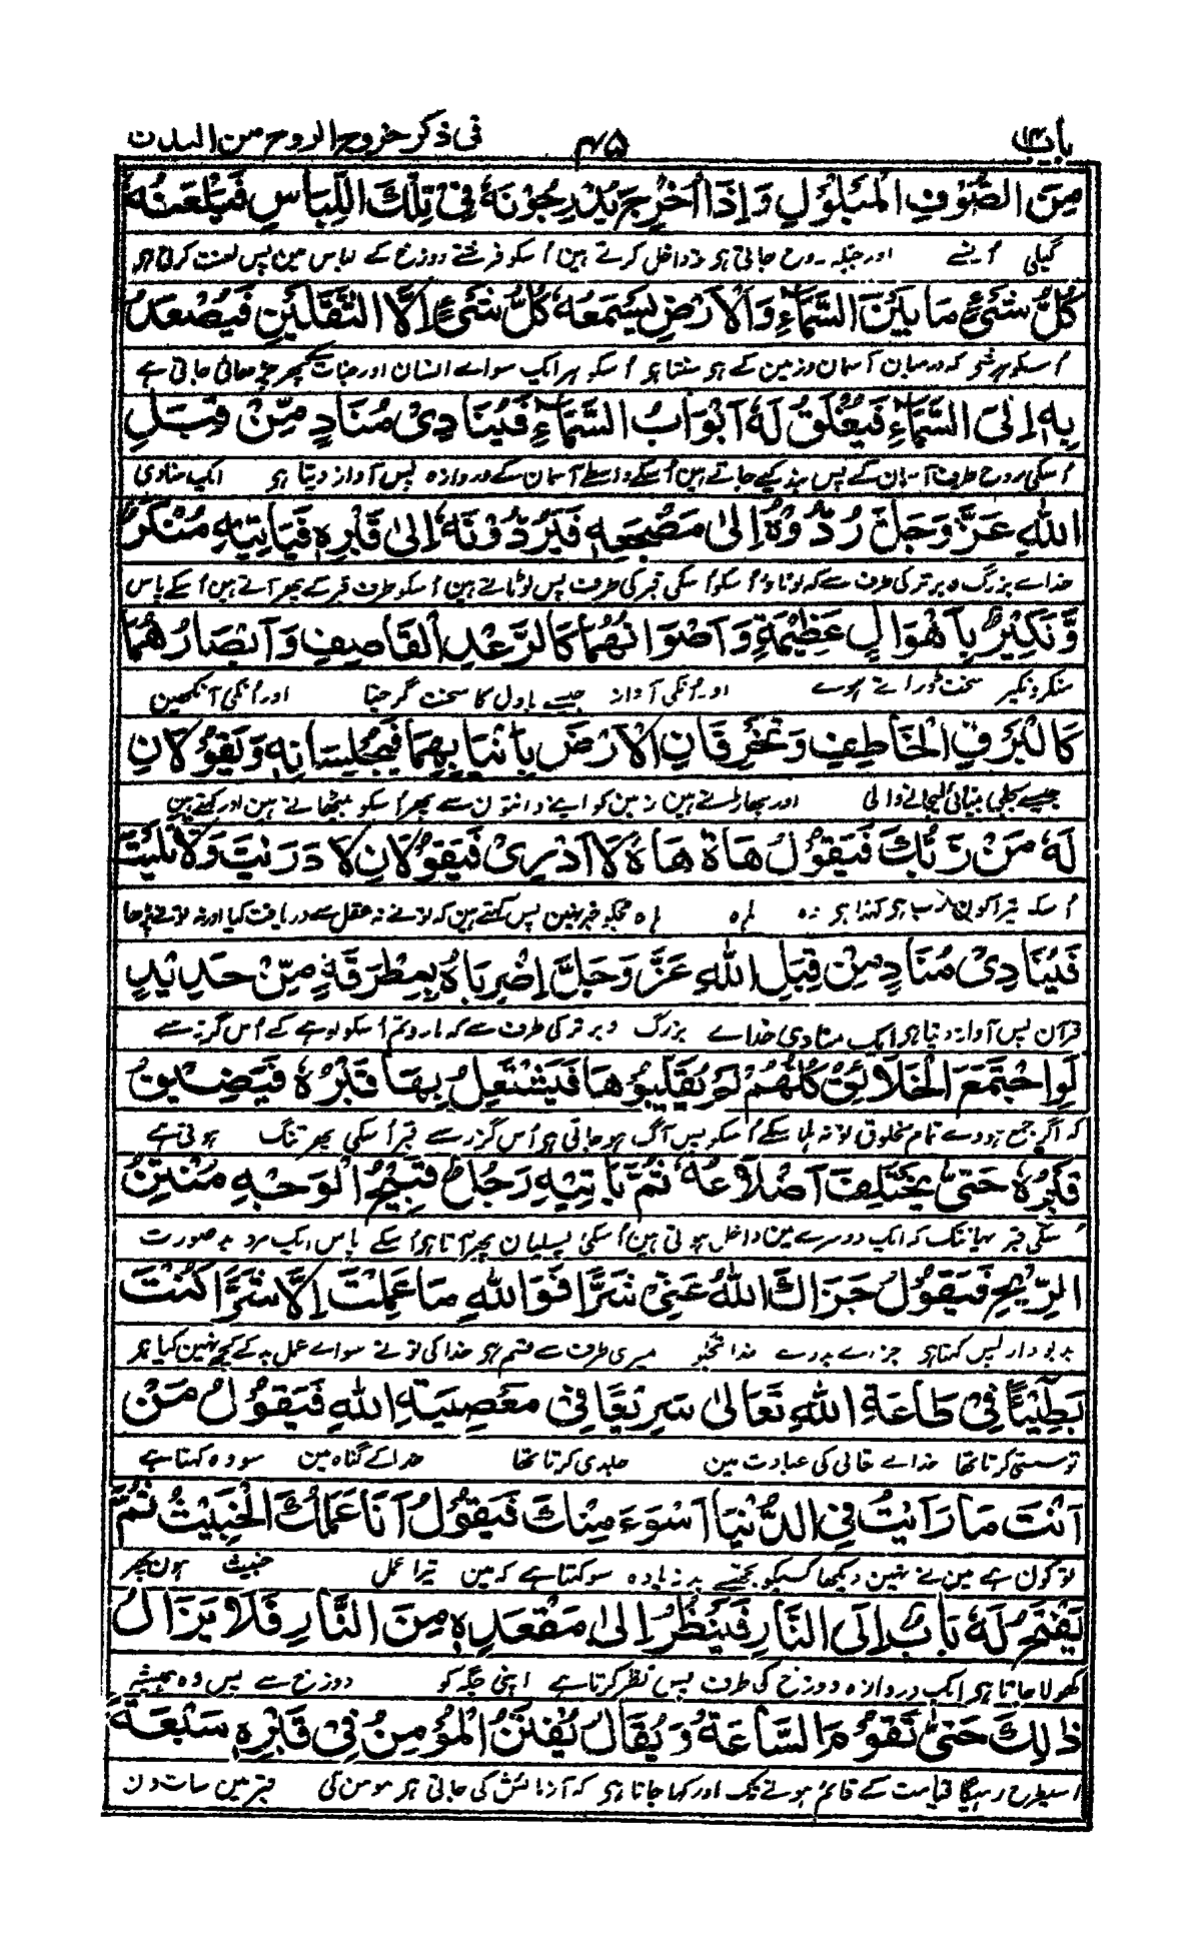 باب ۴۵ فی ذکر خروج الروح من البدن
مِنَ الصُّوْفِ الْمَبْلُوْلِ وَاِذَا اُخْرِجَ يُدْرِجُوْنَهٗ فِیْ تِلْكَ اللِّبَاسِ فَيَلْعَنُهٗ
گیلی اُوسنے اور جبکہ روح جاتی ہو داخل کرتے ہین اُسکو فرشتے دوزخ کے لباس مین پس لعنت کرتی ہو
كُلُّ شَیْءٍ مَا بَيْنَ السَّمَآءِ وَالْاَرْضِ يَسْتَمِعُهٗ كُلُّ شَیْءٍ اِلَّا الثَّقَلَيْنِ فَيُصْعَدُ
اُسکو ہر شے کہ درمیان آسمان و زمین کے ہو سنتا ہو اُسکو ہر ایک سواے انسان اور جنات پھر چڑھائی جاتی ہے
بِهٖ اِلَی السَّمَآءِ فَيُغْلَقُ لَهٗ اَبْوَابُ السَّمَآءِ فَيُنَادِیْ مُنَادٍ مِّنْ قِبَلِ
اُسکی روح طرف آسمان کے پس بند کیے جاتے ہین اُسکے واسطے آسمان کے دروازہ پس آواز دیتا ہو ایک منادی
اللّٰهِ عَزَّ وَجَلَّ رُدُّوْهُ اِلٰی مَضْجَعِهٖ فَيَرُدُّوْنَهٗ اِلٰی قَبْرِهٖ فَيَاْتِيْهِ مُنْكَرٌ
خداے بزرگ و برتر کی طرف سے کہ لوٹا دو اُسکو اُسکی قبر کی طرف پس لوٹاتے ہین اُسکو طرف قبر کے پھر آتے ہین اُسکے پاس
وَّنَكِيْرٌ بِاَهْوَالٍ عَظِيْمَةٍ وَاَصْوَاتُهُمَا كَالرَّعْدِ الْقَاصِفِ وَاَبْصَارُهُمَا
منکر و نکیر سخت ڈراتے ہوے اور اُنکی آواز جیسے بادل کا سخت گرجنا اور اُنکی آنکھین
كَالْبَرْقِ الْخَاطِفِ وَتَخْرِقَانِ الْاَرْضَ بِاَنْيَابِهِمَا فَيُجْلِسَانِهٖ وَيَقُوْلَانِ
جیسے بجلی بینائی لیجانے والی اور پھاڑتے ہین زمین کو اپنے دانتون سے پھر اُسکو بیٹھاتے ہین اور کہتے ہین
لَهٗ مَنْ رَّبُّكَ فَيَقُوْلُ هَاهْ هَاهْ لَا اَدْرِیْ فَيَقُوْلَانِ لَا دَرَيْتَ وَلَا تَلَيْتَ
اُسکہ تیرا کون رب ہو کہتا ہو ہاہ ہاہ مجکو خبر نہین پس کہتے ہین کہ تونے نہ عقل سے دریافت کیا اور نہ تونے پڑھا
فَيُنَادِیْ مُنَادٍ مِنْ قِبَلِ اللّٰهِ عَزَّ وَجَلَّ اِضْرِبَاهُ بِمِطْرَقَةٍ مِّنْ حَدِيْدٍ
قرآن پس آواز دیتا ہو ایک منادی خداے بزرگ و برتر کی طرف سے کہ مارو تم اُسکو لوہے کے اُس گرز سے
لَوِ اجْتَمَعَ الْخَلَائِقُ كُلُّهُمْ لَمْ يُقَلِّبُوْهَا فَيَشْتَعِلُ بِهَا قَبْرُهٗ فَيَضِيْقُ
کہ اگر جمع ہووے تمام مخلوق تو نہ ہلا سکے اُسکو پس آگ ہو جاتی ہو اُس گرز سے قبر اُسکی پھر تنگ ہوتی ہے
قَبْرُهٗ حَتّٰی يَخْتَلِفَ اَضْلَاعُهٗ ثُمَّ يَاْتِيْهِ رَجُلٌ قَبِيْحُ الْوَجْهِ مُنْتِنُ
اُسکی قبر یہانتک کہ ایک دوسرے مین داخل ہوتی ہین اُسکی پسلیان پھر آتا ہو اُسکے پاس ایک مرد بدصورت
الرِّيْحِ فَيَقُوْلُ جَزَاكَ اللّٰهُ عَنِّیْ شَرًّا فَوَاللّٰهِ مَا عَمِلْتَ اِلَّا شَرًّا كُنْتَ
بدبودار پس کہتا ہو جزاے بد دے خدا تجکو میری طرف سے قسم ہو خدا کی تونے سواے عمل بد کے کچھ نہین کیا ہو
بَطِيْئًا فِیْ طَاعَةِ اللّٰهِ تَعَالٰی سَرِيْعًا فِیْ مَعْصِيَةِ اللّٰهِ فَيَقُوْلُ مَنْ
تو سستی کرتا تھا خداے تعالی کی عبادت مین جلدی کرتا تھا خدا کے گناہ مین سو وہ کہتا ہے
اَنْتَ مَا رَاَيْتُ فِی الدُّنْيَا اَسْوَءَ مِنْكَ فَيَقُوْلُ اَنَا عَمَلُكَ الْخَبِيْثُ ثُمَّ
تو کون ہے مین نے نہین دیکھا کسیکو تجھسے بد زیادہ سو کہتا ہے کہ مین تیرا عمل خبیث ہون پھر
يُفْتَحُ لَهٗ بَابٌ اِلَی النَّارِ فَيَنْظُرُ اِلٰی مَقْعَدِهٖ مِنَ النَّارِ فَلَا يَزَالُ
کھولا جاتا ہو ایک دروازہ دوزخ کی طرف پس نظر کرتا ہے اپنی جگہ کو دوزخ سے پس وہ ہمیشہ
ذٰلِكَ حَتّٰی تَقُوْمَ السَّاعَةُ وَيُقَالُ يُفْتَنُ الْمُؤْمِنُ فِیْ قَبْرِهٖ سَبْعَةَ
اسیطرح رہیگا قیامت کے قائم ہونے تک اور کہا جاتا ہو کہ آزمائش کی جاتی ہو مومن کی قبر مین سات دن